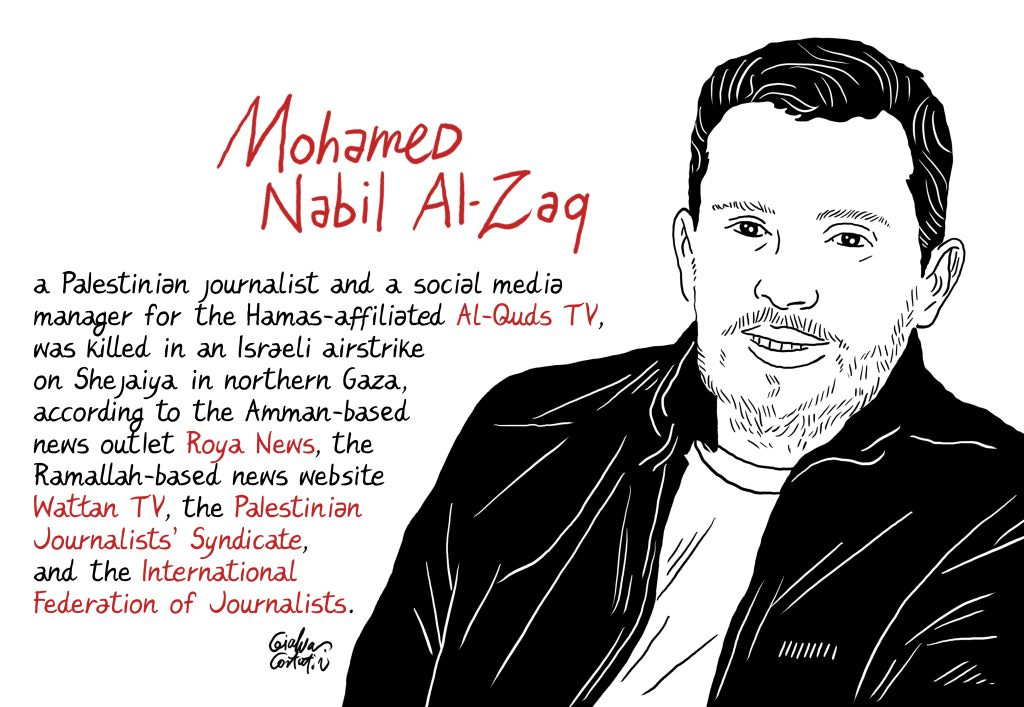 Mohamed
Nabil Al-Zaq
a Palestinian journalist and a social media
manager for the Hamas-affiliated Al-Quds TV,
was killed in an Israeli airstrike
on Shejaiya in northern Gaza,
according to the Amman-based
news outlet Roya News, the
Ramallah-based news website
Wattan TV, the Palestinian
Journalists' Syndicate,
and the International
Federation of Journalists.